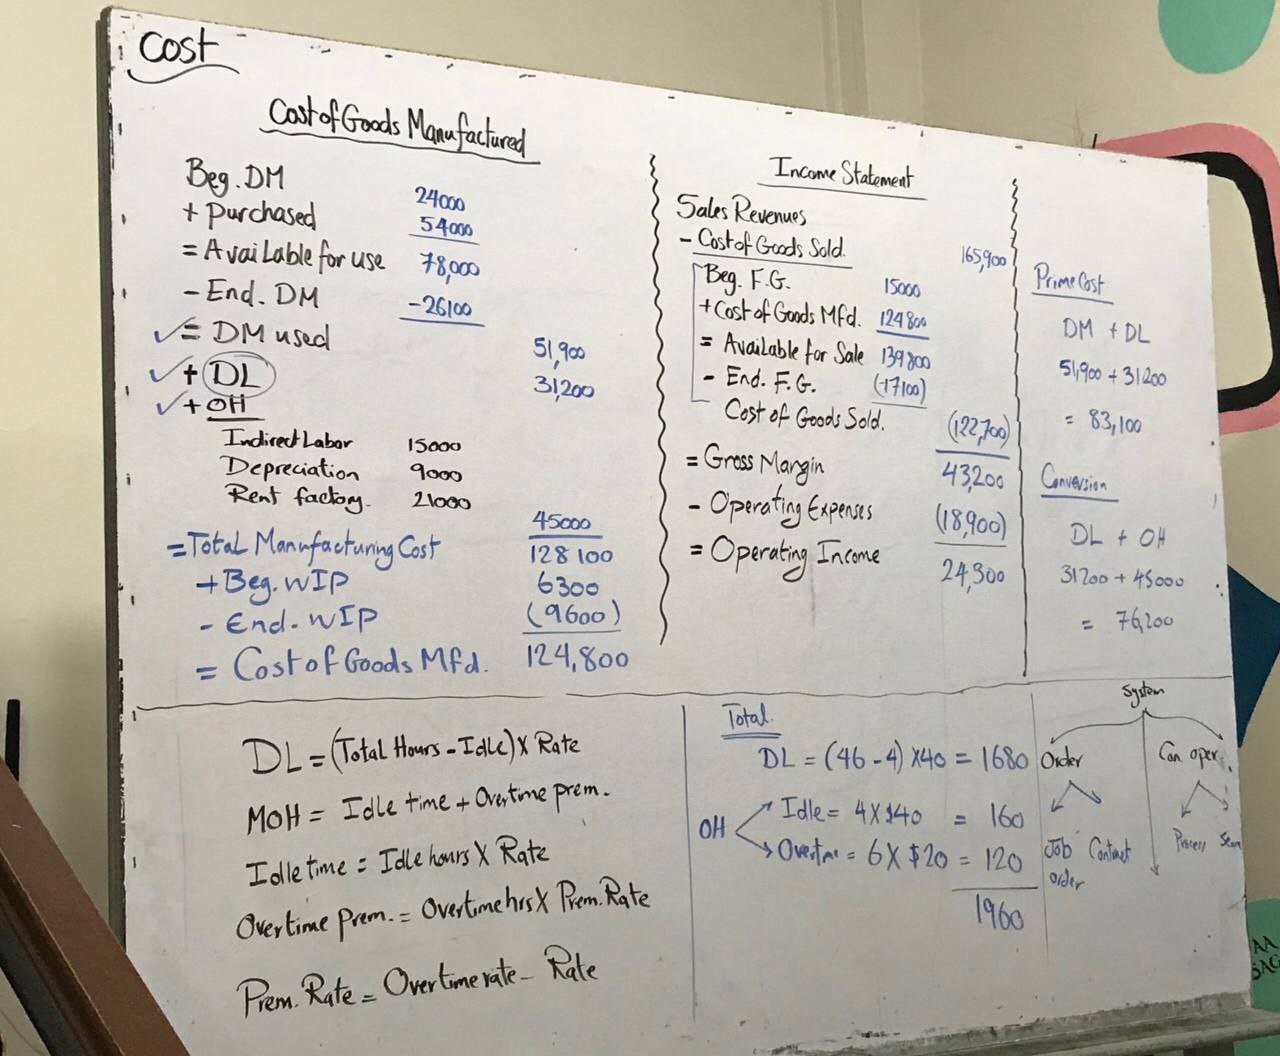 Cost
Cost of Goods Manufactured
Beg. DM 24000
+ Purchased 54000
= Available for use 78,000
- End. DM -26100
= DM used 51,900
+ DL 31,200
+ OH
Indirect Labor 15000
Depreciation 9000
Rent factory. 21000
45000
= Total Manufacturing Cost 128100
+ Beg. WIP 6300
- End. WIP (9600)
= Cost of Goods Mfd. 124,800
Income Statement
Sales Revenues 165,900
- Cost of Goods Sold.
Beg. F.G. 15000
+ Cost of Goods Mfd. 124800
= Available for Sale 139800
- End. F.G. (-17100)
Cost of Goods Sold. (122,700)
= Gross Margin 43,200
- Operating Expenses (18,900)
= Operating Income 24,300
Prime Cost
DM + DL
51,900 + 31200
= 83,100
Conversion
DL + OH
31200 + 45000
= 76,200
DL = (Total Hours - Idle) X Rate
MOH = Idle time + Overtime prem.
Idle time = Idle hours X Rate
Overtime Prem. = Overtime hrs X Prem. Rate
Prem. Rate = Overtime rate - Rate
Total.
DL = (46 - 4) X 40 = 1680
OH
Idle = 4 X $40 = 160
= 6 X $20 = 120
1960
System
Order
Job Contract
order
oper.
Process
AA